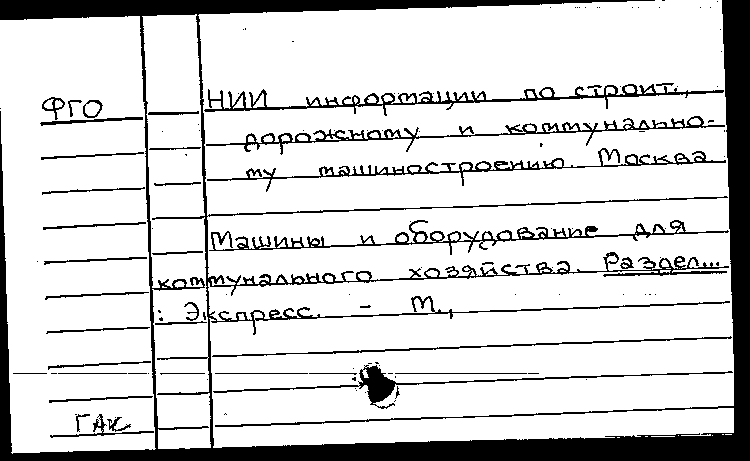 ФГО НИИ информации по строит.,
дорожному и коммунально-
му машиностроению. Москва.
Машины и оборудование для
коммунального хозяйства. Раздел...
: Экспресс. - М.,
ГАК